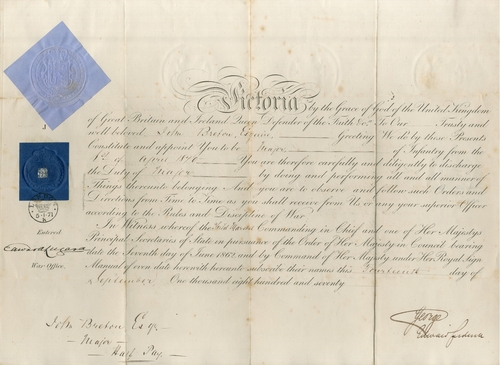 Victoria by the Grace of God of the United Kingdom
of Great Britain and Ireland Queen Defender of the Faith &c. To Our Trusty and
well beloved John Breton, Esquire Greeting We do by these Presents
Constitute and appoint You to be Major of Infantry from the
1st of April 1870 You are therefore carefully and diligently to discharge
the Duty of Major by doing and performing all and all manner of
Things thereunto belonging And you are to observe and follow such Orders and
Directions from Time to Time as you shall receive from Us or any your superior Officer
according to the Rules and Discipline of War
In Witness whereof the Commanding in Chief and one of Her Majestys
Principal Secretaries of State in pursuance of the Order of Her Majesty in Council bearing
date the Seventh day of June 1862 and by Command of Her Majesty under Her Royal Sign
Manual of even date herewith hereunto subscribe their names this Fourteenth day of
September One thousand eight hundred and seventy
Entered
War Office.
George
Edward Cardwell
John Breton Esqr
Major
Half Pay